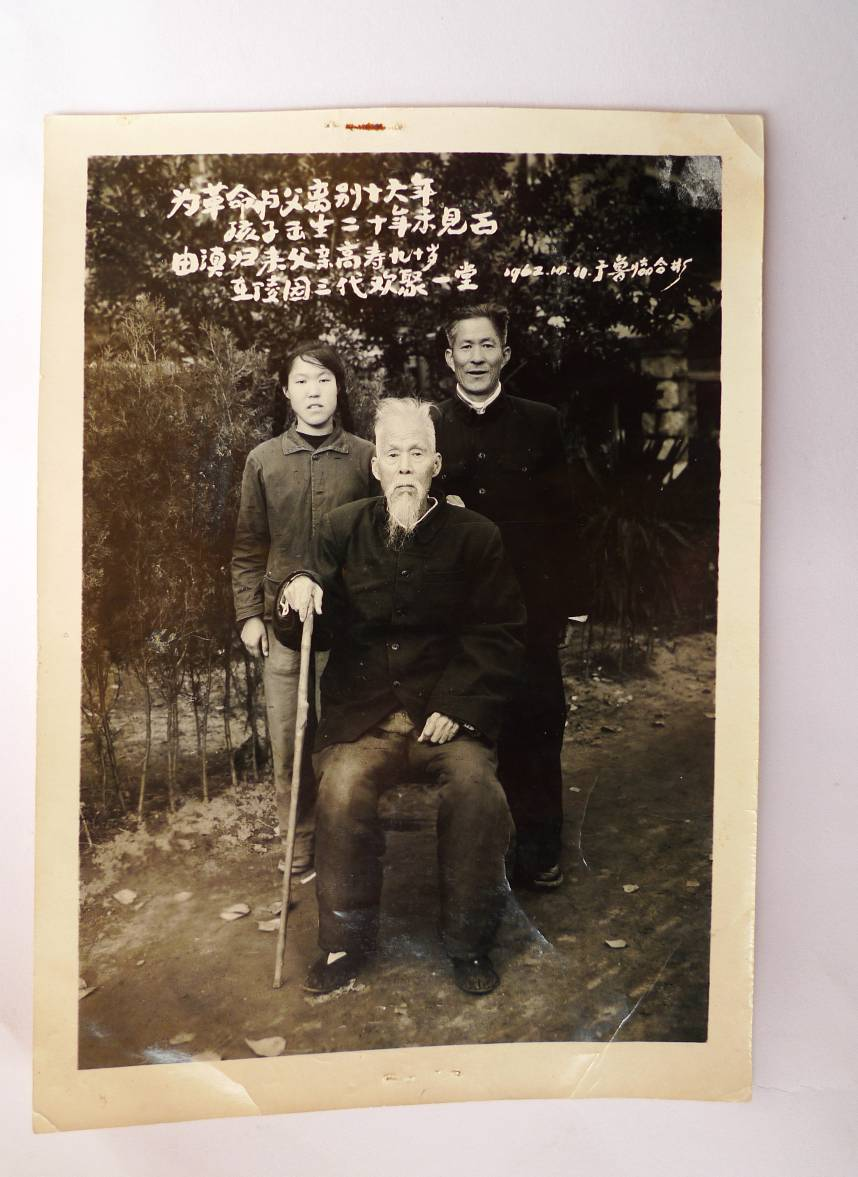 为革命与父离别十六年
孩子出生二十年未见面
由滇归来父亲高寿九十岁
在陵园三代欢聚一堂 1962.10.10.于鲁 合影